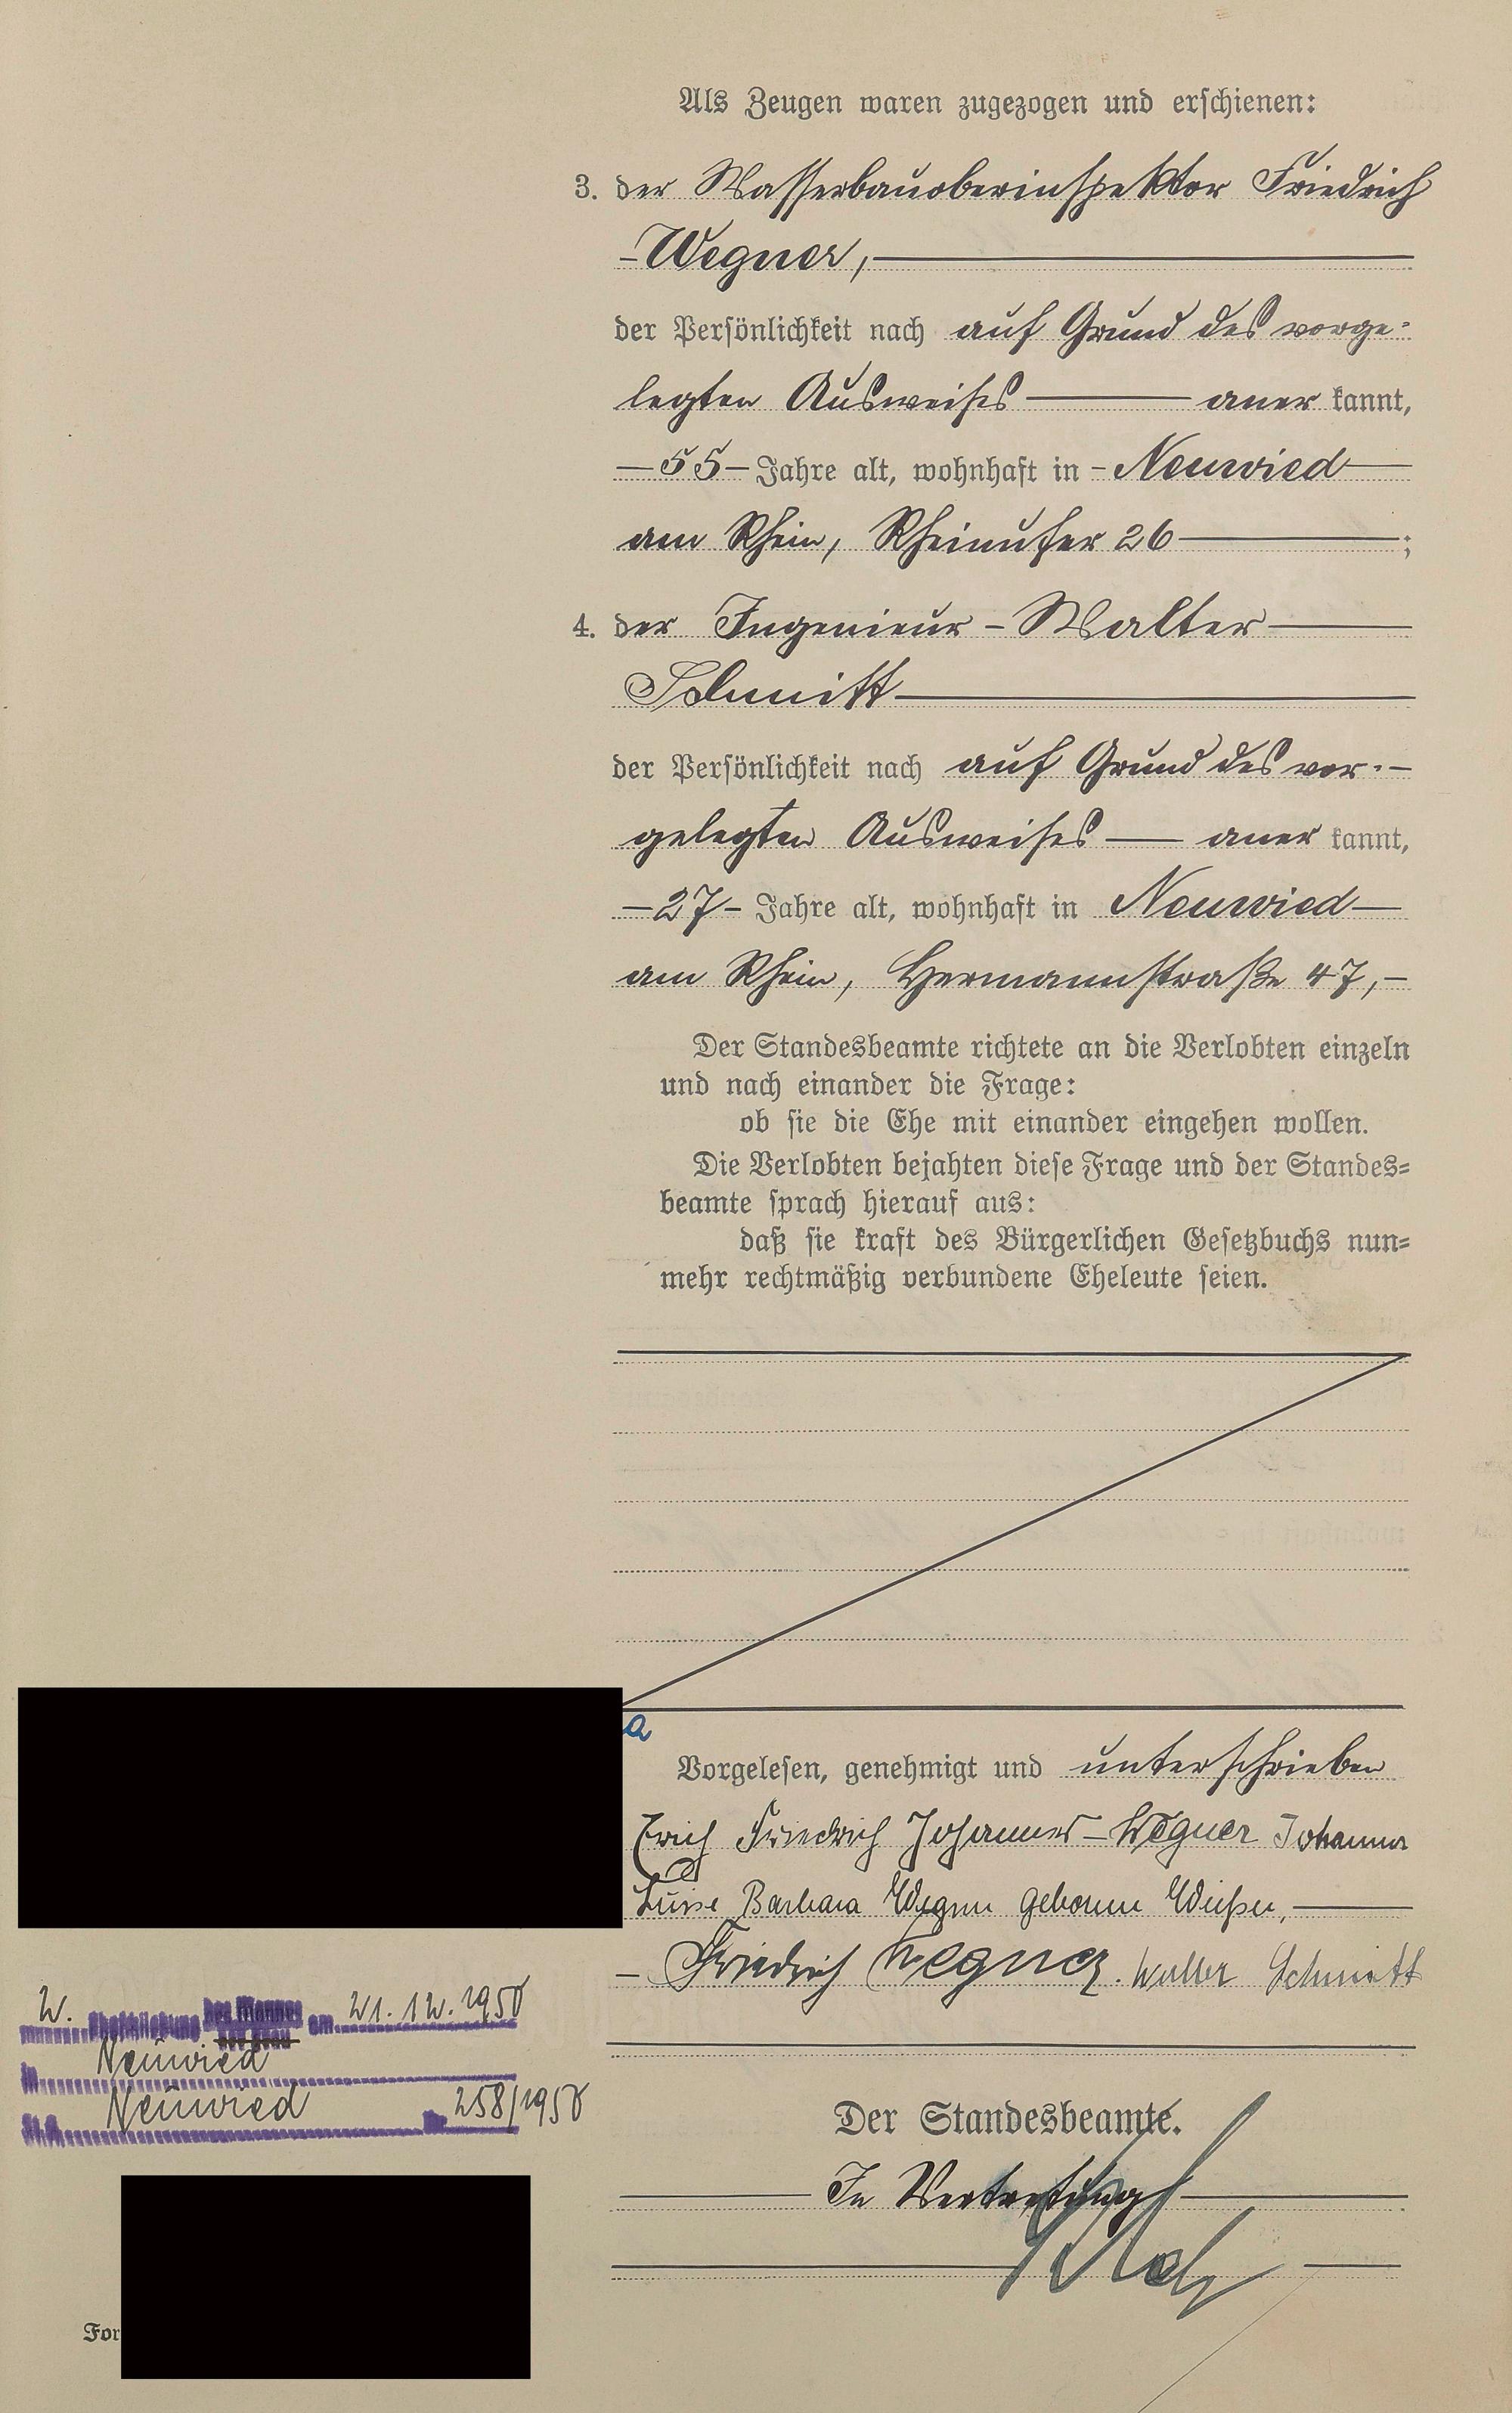 Als Zeugen waren zugezogen und erschienen:
3. der Wasserbauoberinspektor Friedrich
- Wegner,
der Persönlichkeit nach auf Grund des vorge-
legten Ausweises aner kannt,
- 55 - Jahre alt, wohnhaft in - Neuwied
am Rhein, Rheinufer 26 ;
4. der Ingenieur - Walter
Schmitt
der Persönlichkeit nach auf Grund des vor-
gelegten Ausweises aner kannt,
- 27 - Jahre alt, wohnhaft in Neuwied
am Rhein, Hermannstraße 47,
Der Standesbeamte richtete an die Verlobten einzeln
und nach einander die Frage:
ob sie die Ehe mit einander eingehen wollen.
Die Verlobten bejahten diese Frage und der Standes-
beamte sprach hierauf aus:
daß sie kraft des Bürgerlichen Gesetzbuchs nun-
mehr rechtmäßig verbundene Eheleute seien.
Vorgelesen, genehmigt und unterschrieben
Erich Friedrich Johannes Wegner Johanna
Luise Barbara Wegner geborene
- Friedrich Wegner. Walter Schmitt
2. Eheschließung des Mannes der Frau am 21.12.1950
in Neuwied
St.A. Neuwied Nr. 258/1950
Der Standesbeamte.
In Vertretung
For